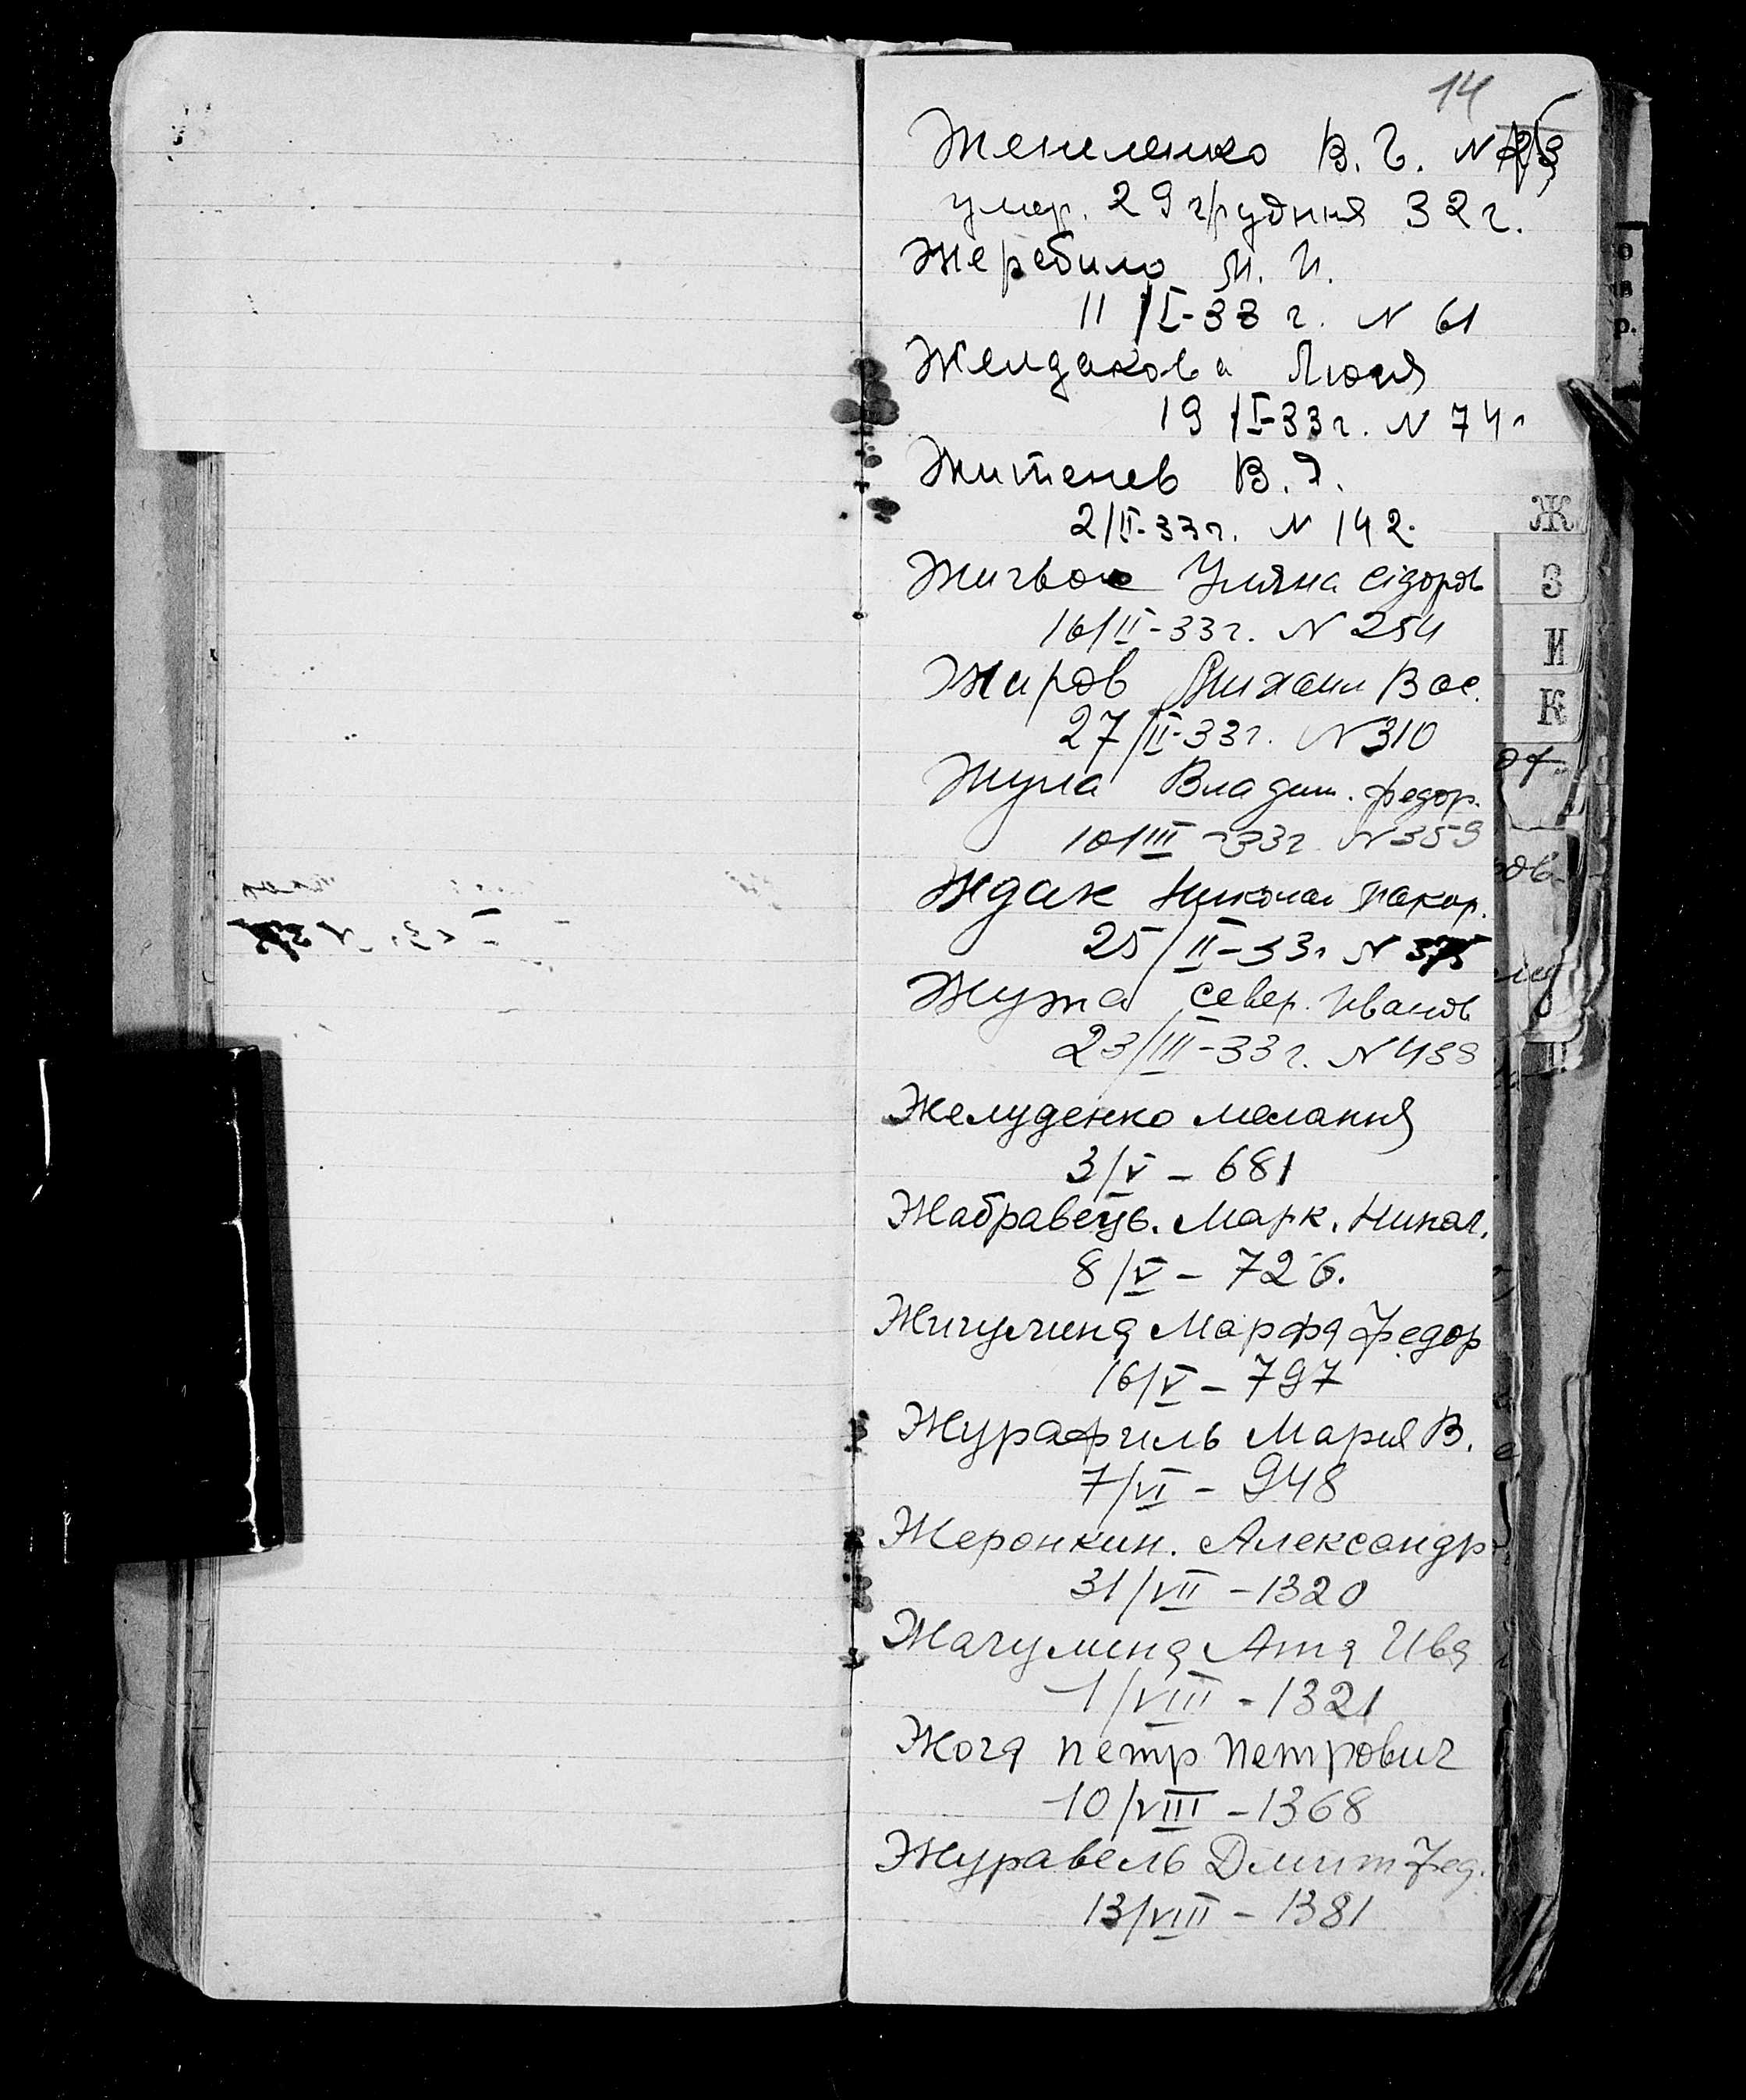 14
В. Г. N
умер. 29 грудння 32 г.
Жеребило И. И.
11/I-33 г. N 61
Желдакова Люся
19/I-33 г. N 74
Житенев В. Я.
2/II-33 г. N 142.
Уляна Сідоров
16/II-33 г. N 254
Жиров Михаил Вас.
27/II-33 г. N 310
Жула Владим. Федор.
10/III-33 г. N 359
Ждак Николай Макар.
25/II-33 г. N 375
Жужа Север. Иванов
23/III-33 г. N 438
Желуденко Мелания
3/V - 681
Жабравець. Марк. Никол.
8/V - 726.
Жигулина Марфа Федор
16/V - 797
Журафиль Мария В.
7/VI - 948
Жеронкин. Александр
31/VII - 1320
Жагулина Ива
1/VIII - 1321
Жога Петр Петрович
10/VIII - 1368
Журавель Дмит Фед.
13/VIII - 1381
Ж
З
И
К